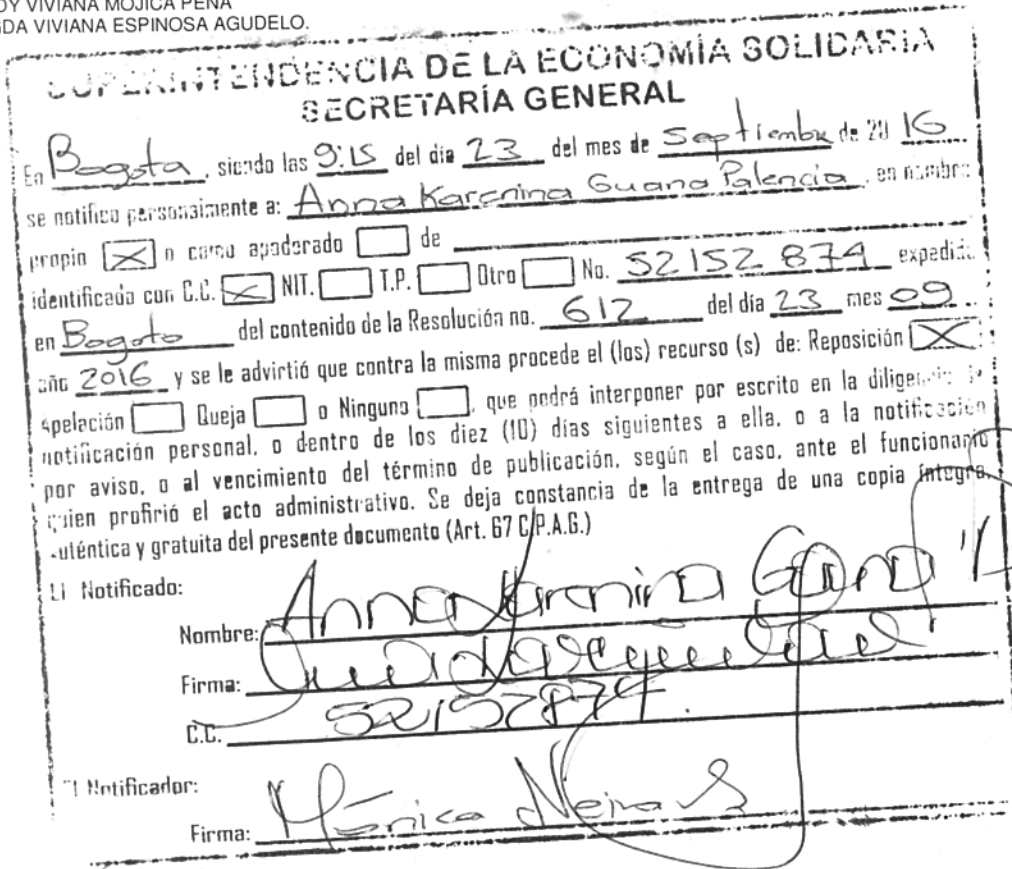 DY VIVIANA MOJICA PEÑA
GDA VIVIANA ESPINOSA AGUDELO.
SUPERINTENDENCIA DE LA ECONOMÍA SOLIDARIA
SECRETARÍA GENERAL
En Bogota, siendo las 9:15 del dia 23 del mes de Septiembre de 20 16
se notifica personalmente a: Anna Karenina Guana Palencia, en nombre
propio [X] o como apoderado [ ] de
identificado con C.C. [X] NIT. [ ] T.P. [ ] Otro [ ] No. 52152 874 expedida
en Bogota del contenido de la Resolución no. 612 del día 23 mes 09
año 2016 y se le advirtió que contra la misma procede el (los) recurso (s) de: Reposición [X]
Apelación [ ] Queja [ ] o Ninguno [ ], que podrá interponer por escrito en la diligencia de
notificación personal, o dentro de los diez (10) días siguientes a ella, o a la notificación
por aviso, o al vencimiento del término de publicación, según el caso, ante el funcionario
quien profirió el acto administrativo. Se deja constancia de la entrega de una copia íntegra,
auténtica y gratuita del presente documento (Art. 67 C.P.A.G.)
El Notificado:
Nombre: Anna Karenina Guana P
Firma:
C.C. 52152874.
El Notificador:
Firma: Mónica Neira S